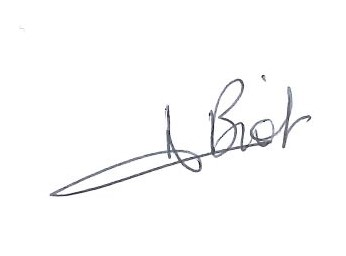 A Biot